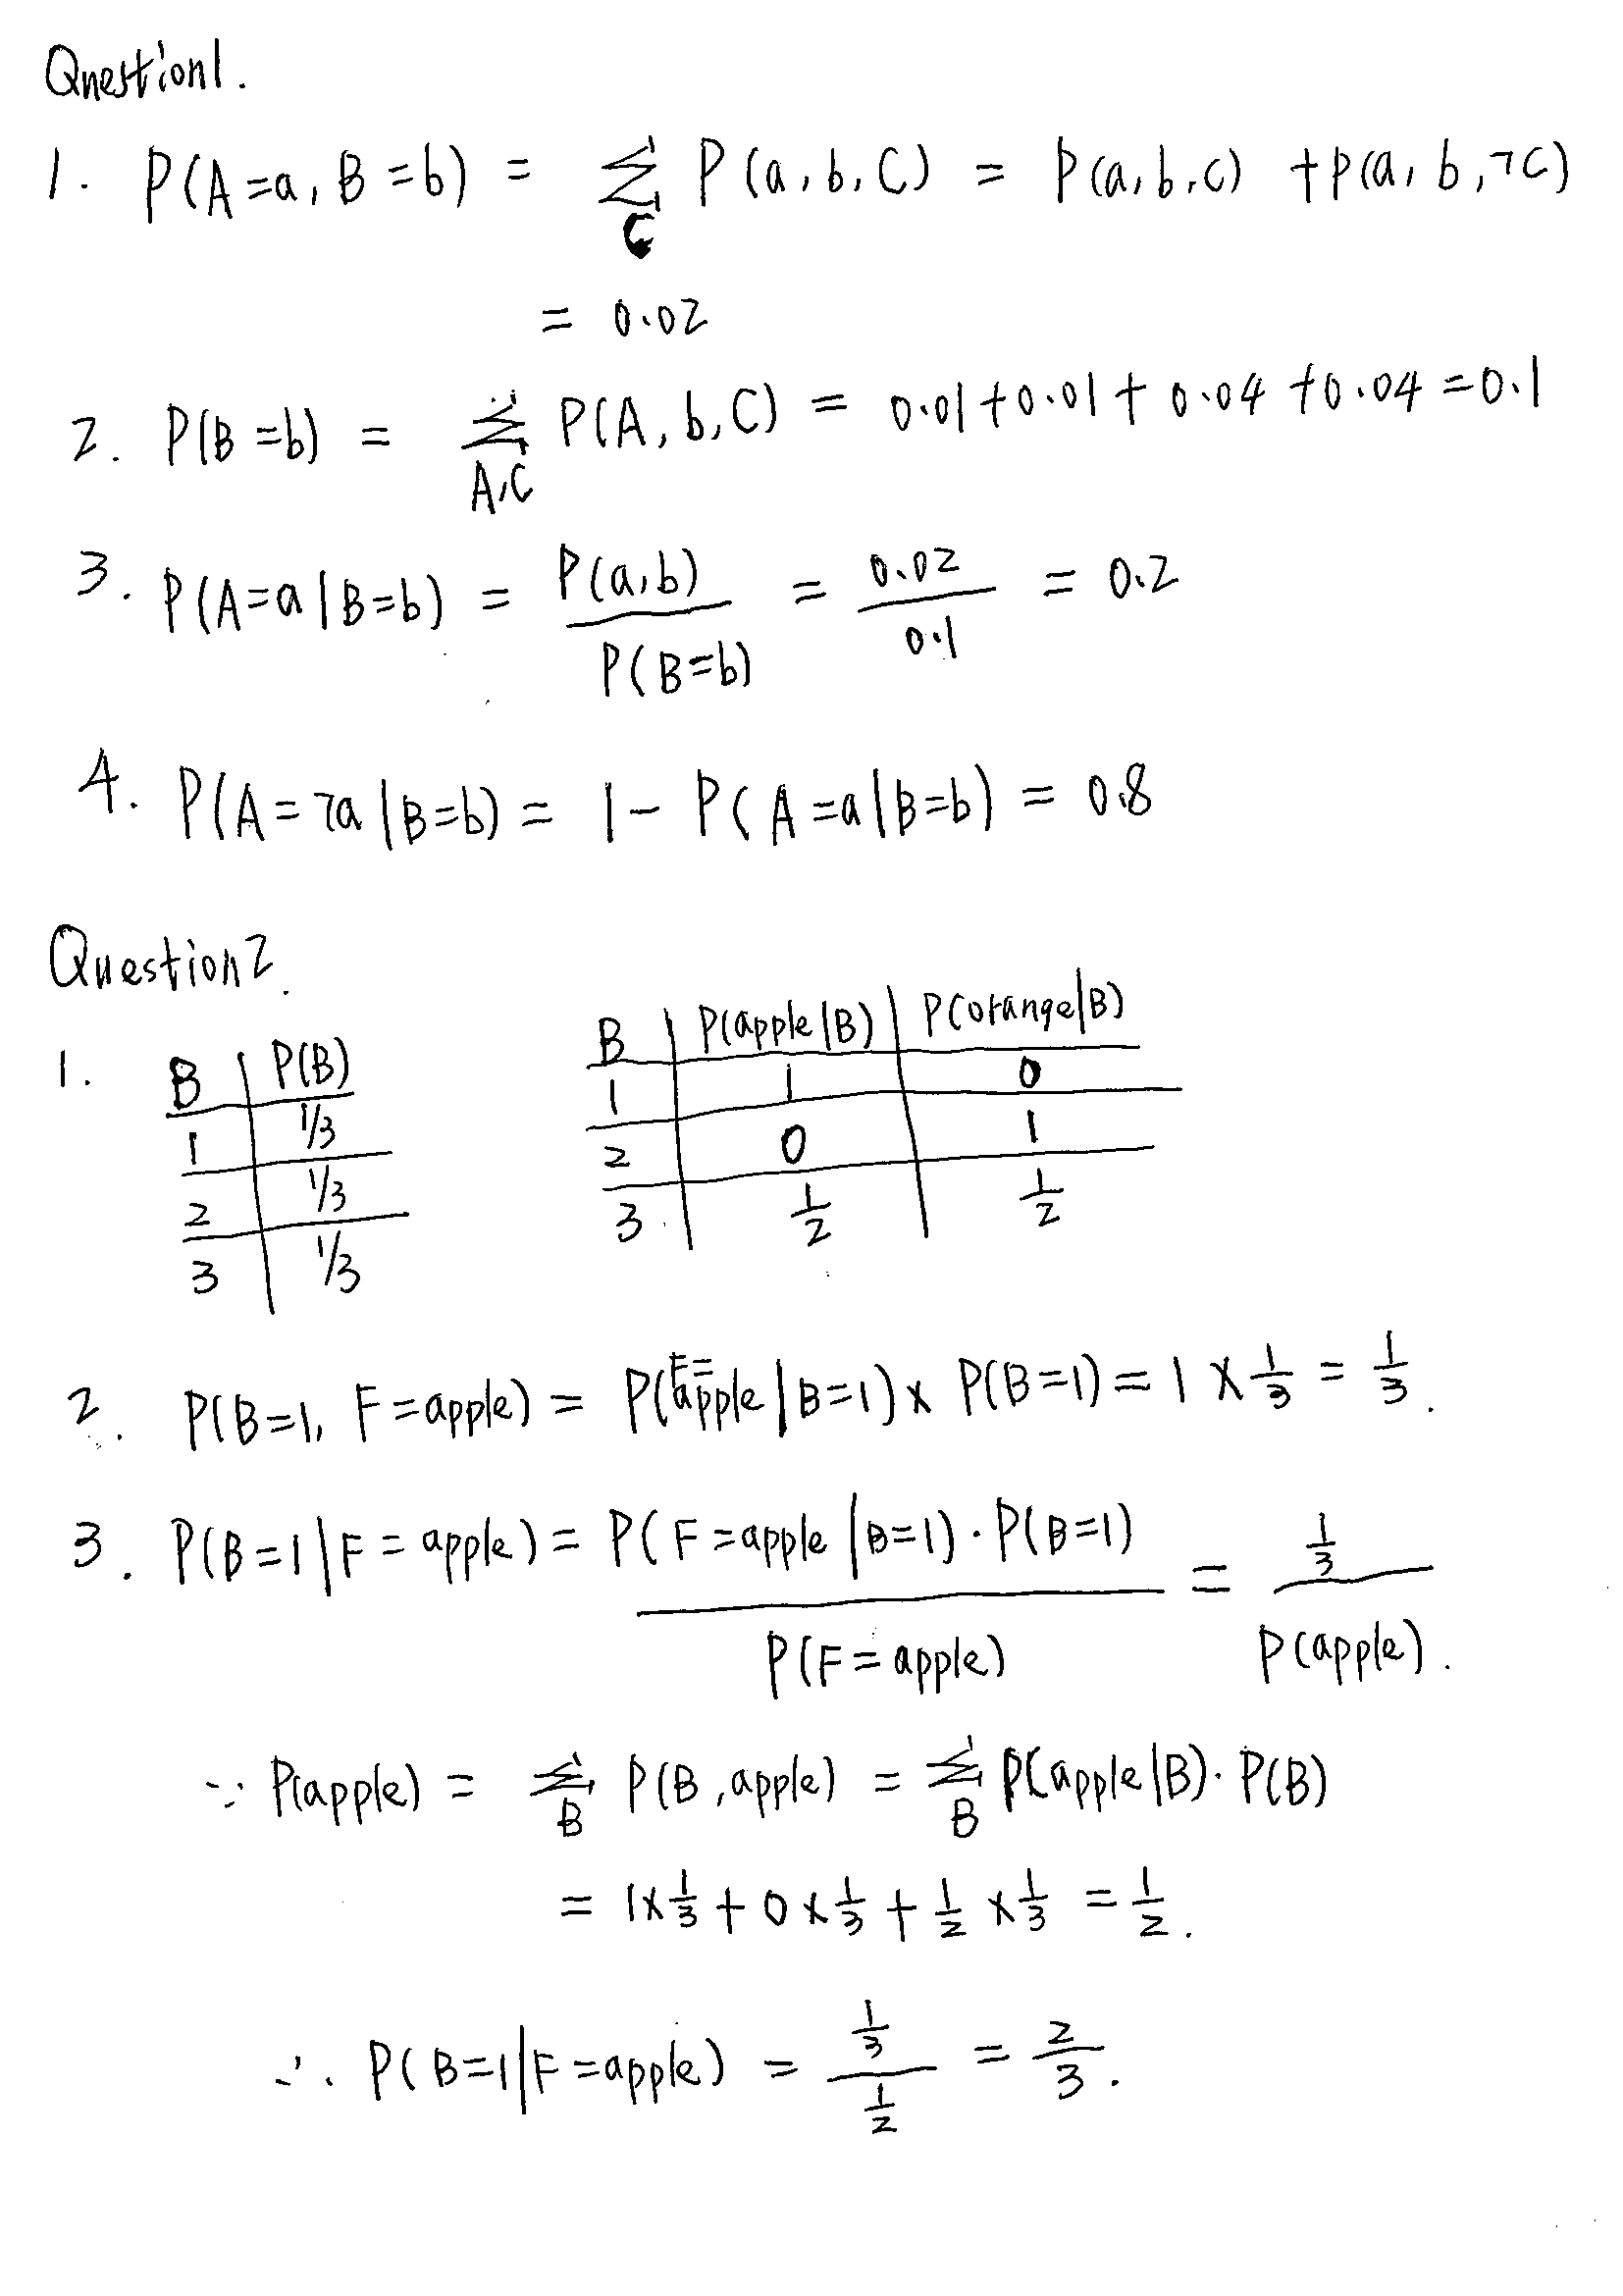 Question1.
1. P(A=a, B=b) = ∑_C P(a, b, C) = P(a, b, c) + P(a, b, ¬c)
= 0.02
2. P(B=b) = ∑_{A,C} P(A, b, C) = 0.01+0.01+0.04+0.04=0.1
3. P(A=a|B=b) = P(a,b) / P(B=b) = 0.02 / 0.1 = 0.2
4. P(A=¬a|B=b) = 1 - P(A=a|B=b) = 0.8
Question2.
1. B | P(B)
1 | 1/3
2 | 1/3
3 | 1/3
B | P(apple|B) | P(orange|B)
1 | 1 | 0
2 | 0 | 1
3 | 1/2 | 1/2
2. P(B=1, F=apple) = P(F=apple|B=1) × P(B=1) = 1 × 1/3 = 1/3.
3. P(B=1|F=apple) = P(F=apple|B=1)·P(B=1) / P(F=apple) = 1/3 / P(apple).
∵ P(apple) = ∑_B P(B, apple) = ∑_B P(apple|B)·P(B)
= 1×1/3 + 0×1/3 + 1/2×1/3 = 1/2.
∴ P(B=1|F=apple) = 1/3 / 1/2 = 2/3.